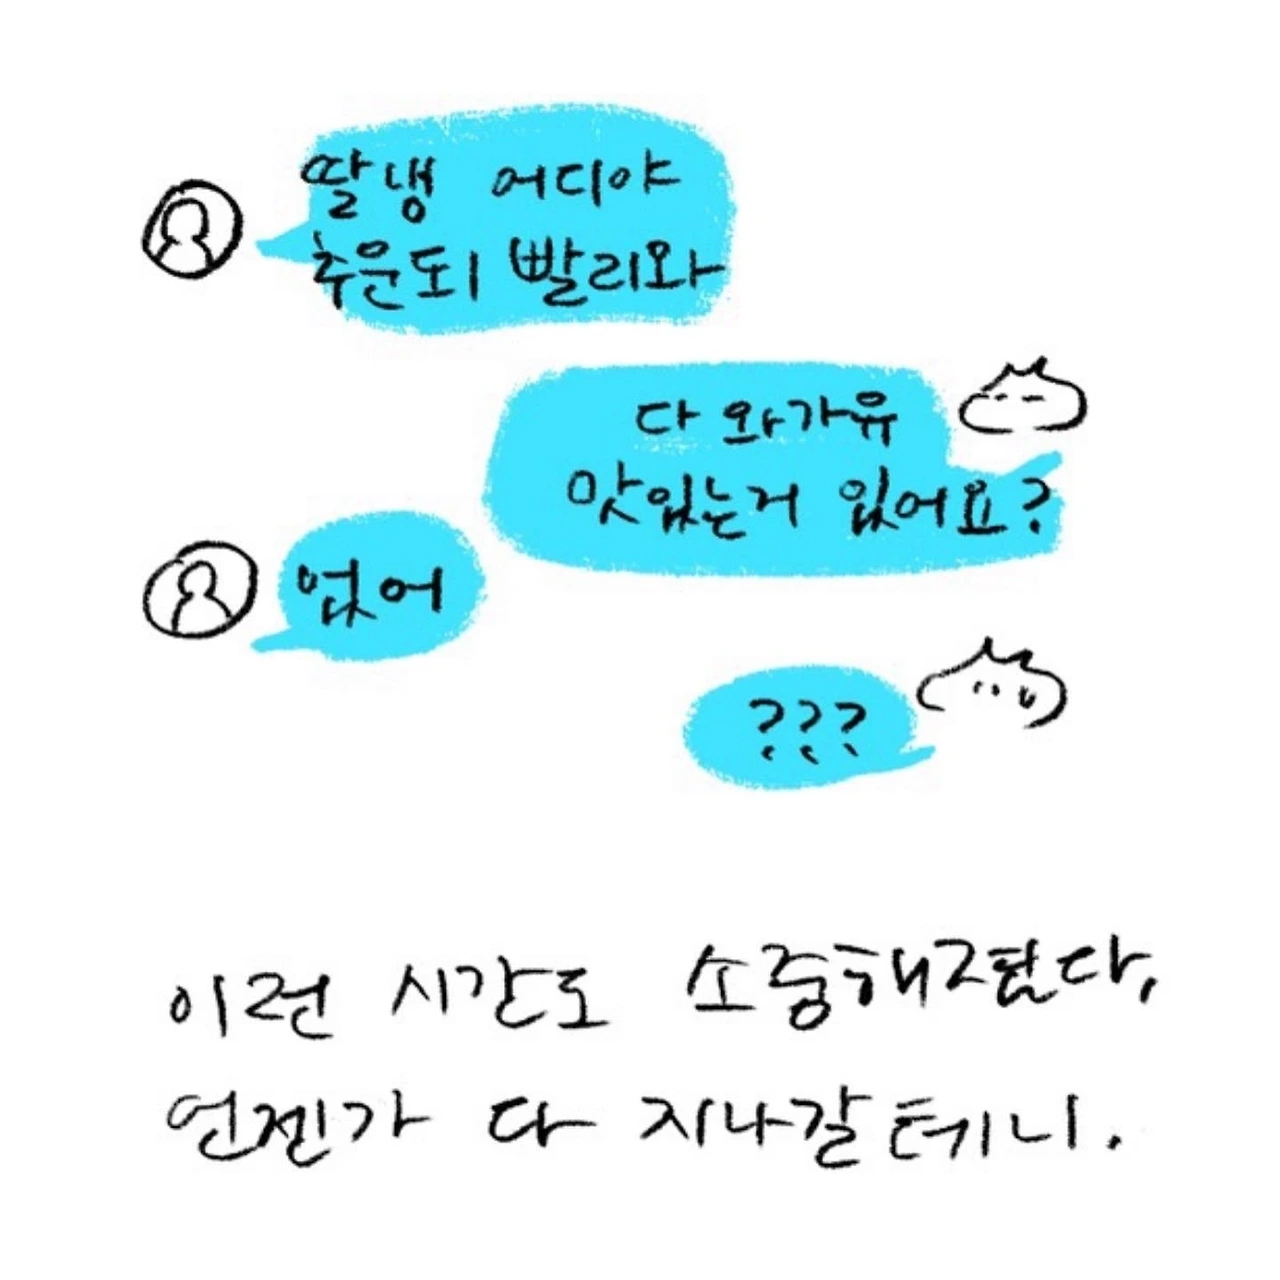 딸냉 어디야
추운되 빨리와
다 와가유
맛있는거 있어요?
없어
???
이런 시간도 소중해졌다,
언젠가 다 지나갈테니.